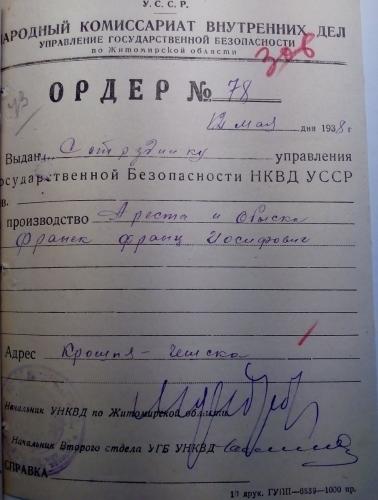 У.С.С.Р.
НАРОДНЫЙ КОМИССАРИАТ ВНУТРЕННИХ ДЕЛ
УПРАВЛЕНИЕ ГОСУДАРСТВЕННОЙ БЕЗОПАСНОСТИ
по Житомирской области
ОРДЕР № 78
12 мая дня 1938 г
Выдан Сотруднику управления
Государственной Безопасности НКВД УССР
ов.
производство Ареста и Обыска
Франек Франц Иосифович
Адрес Крошня-Чешска
Начальник УНКВД по Житомирской области
Начальник Второго отдела УГБ УНКВД
СПРАВКА
10 друк. ГУПП—6539—1000 пр.